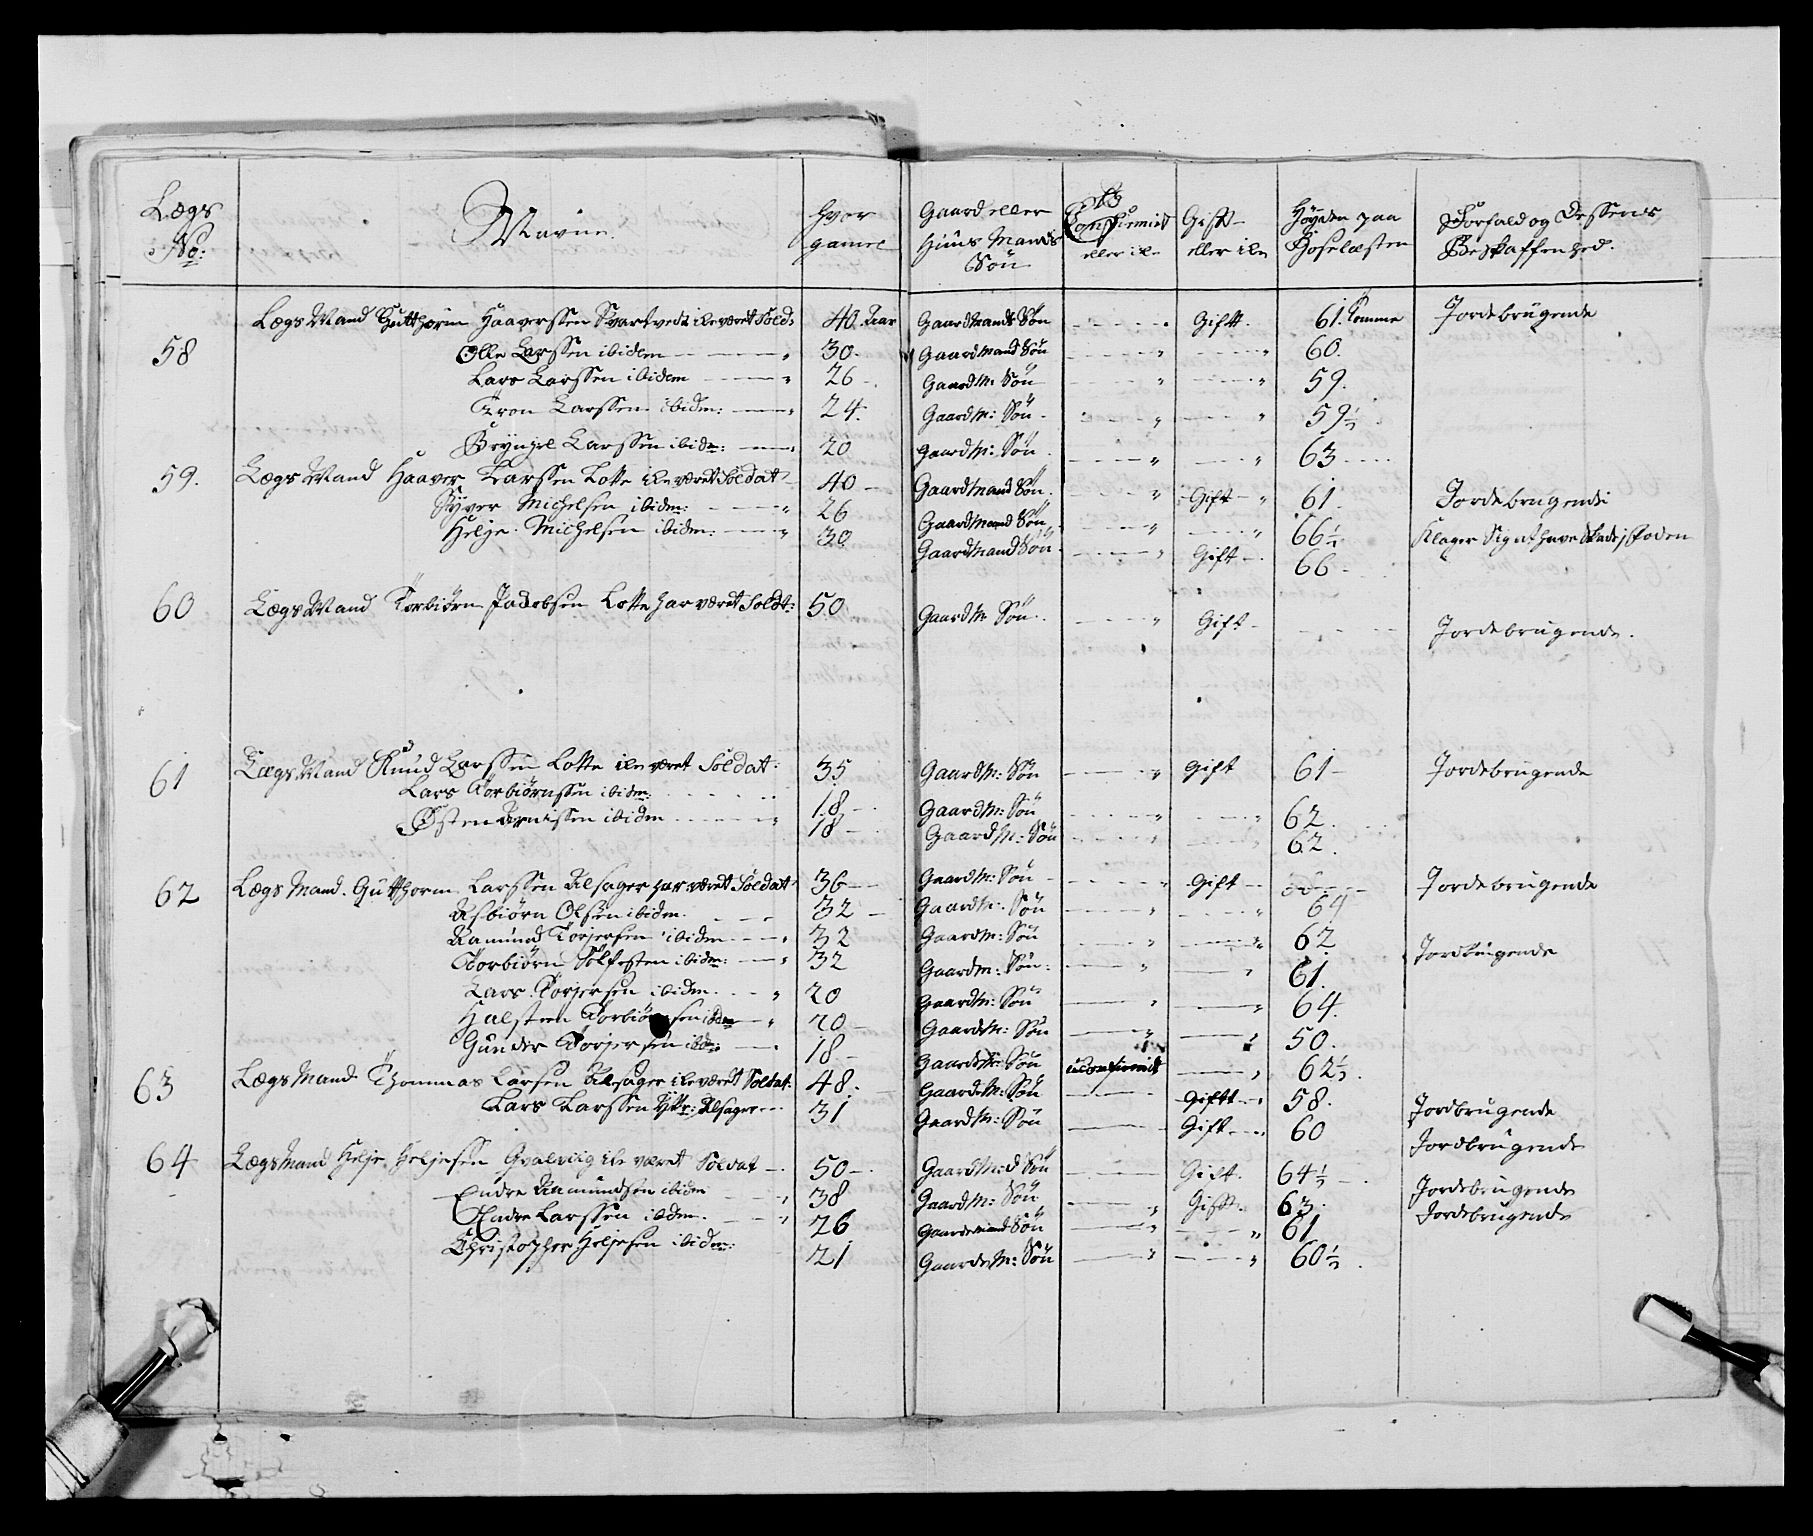 Lægs No: Navne. hvor gamel Gaard eller Huus Mands Søn Er Confirmirt eller ik Gift eller ikn Høyden paa Hoselæsten Forfald og Dessens Beskaffenhed.
58 Lægs Mand Gutthorm Haaverssen Svartvedt ik været Sold: 40 Aar Gaardmands Søn Gift. 61. Tomme Jordebrugende
Olle Larssen ibidem 30. Gaardmand Søn 60.
Lars Larssen ibidem 26 Gaard M: Søn 59.
Tron Larssen ibidm: 24. Gaard M: Søn 59½
Bryngel Larssen ibidm: 20 Gaard M: Søn 63
59. Lægs Mand Haaver Larssen Lotte ik været Soldat 40 Gaardmand Søn. Gift 61. Jordebrugende
Syver Michelsen ibidm: 26 Gaardmand Søn 66½ Klager Sig at have Skade i Foden
Helje Michelsen ibidm: 30 Gaardmand Søn Gift 66
60 Lægs Mand Torbiørn Jacobsen Lotte har været Soldt: 50 Gaard M Søn. Gift Jordebrugende.
61 Lægs Mand Knud Larssen Lotte ik været Soldat: 35 Gaard M: Søn Gift 61 Jordebrugende
Lars Torbiørnssen ibidm: 18 Gaard M: Søn 62.
Østen Arnissen ibidem 18 Gaard M: Søn 62.
62 Lægs Mand. Gutthorm Larssen Alsager har været Soldat 36 Gaard M: Søn Gift Jordebrugende
Asbiørn Olsen ibidem. 32 Gaard M: Søn 64
Aamund Torjersen ibidem 32 Gaard M: Søn 62 Jordbrugende
Torbiørn Solfesten ibidm: 32 Gaard M: Søn: 61.
Lars Torjersen ibidem. 20 Gaard M: Søn 64.
Halsten Torbiørnsen ibdm 20 Gaard M: Søn 50.
Gunder Torjersen ibdm: 18. Gaard M: Søn uConfirmirt 62½.
63 Lægs Mand Thommas Larsen Alsager ik været Soldat. 48. Gaard M: Søn Gift 58. Jordbrugende
Lars Larssen Alsager 31 Gaard M: Søn Gift 60 Jordbrugende
64 Lægs Mand Helje Heljesen Gvalviig ik været Soldat 50 Gaard M:d Søn Gift. 64½ Jordebrugende
Endre Aamundsen ibidm 38 Gaard M: Søn Gift. 63. Jordebrugende
Endre Larssen ibdm. 26 Gaardemand Søn 61
Christopher Heljesen ibidem: 21 Gaarde M: Søn 60½.